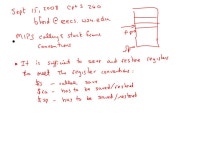 Sept 15, 2008 Cpt S 260
@ eecs.wsu.edu
• MIPS calling & stack frame
conventions
fp→
sp→
• It is sufficient to save and restore registers
to meet the register conventions.
- callee save
$ra - has to be saved/restored
$sp - has to be saved/restored